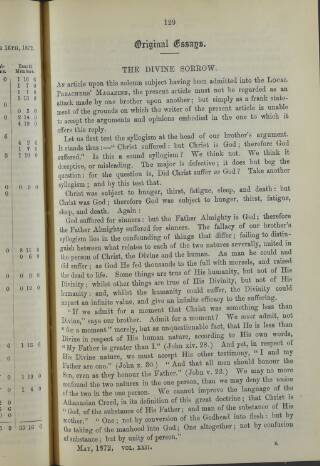 129
Original Essays.
THE DIVINE SORROW.
AN article upon this solemn subject having been admitted into the LOCAL
PREACHERS' MAGAZINE, the present article must not be regarded as an
attack made by one brother upon another; but simply as a frank state-
ment of the grounds on which the writer of the present article is unable
to accept the arguments and opinions embodied in the one to which it
offers this reply.
Let us first test the syllogism at the head of our brother's argument.
It stands thus:—"Christ suffered: but Christ is God; therefore God
suffered." Is this a sound syllogism? We think not. We think it
deceptive, or misleading. The major is defective; it does but beg the
question: for the question is, Did Christ suffer as God? Take another
syllogism; and by this test that.
Christ was subject to hunger, thirst, fatigue, sleep, and death: but
Christ was God; therefore God was subject to hunger, thirst, fatigue,
sleep, and death. Again:
God suffered for sinners: but the Father Almighty is God; therefore
the Father Almighty suffered for sinners. The fallacy of our brother's
syllogism lies in the confounding of things that differ; failing to distin-
guish between what relates to each of the two natures severally, united in
the person of Christ, the Divine and the human. As man he could and
did suffer; as God He fed thousands to the full with morsels, and raised
the dead to life. Some things are true of His humanity, but not of His
Divinity; whilst other things are true of His Divinity, but not of His
humanity; and, whilst the humanity could suffer, the Divinity could
impart an infinite value, and give an infinite efficacy to the suffering.
"If we admit for a moment that Christ was something less than
Divine," says our brother. Admit for a moment! We must admit, not
"for a moment" merely, but as unquestionable fact, that He is less than
Divine in respect of His human nature, according to His own words,
"My Father is greater than I." (John xiv. 28.) And yet, in respect of
His Divine nature, we must accept His other testimony, "I and my
Father are one." (John x. 30.) "And that all men should honour the
Son, even as they honour the Father." (John v. 23.) We may no more
confound the two natures in the one person, than we may deny the union
of the two in the one person. We cannot improve the language of the
Athanasian Creed, in its definition of this great doctrine; that Christ is
"God, of the substance of His Father; and man of the substance of His
mother." "One; not by conversion of the Godhead into flesh: but by
the taking of the manhood into God; One altogether; not by confusion
of substance; but by unity of person."
MAY, 1872, VOL. XXII. K